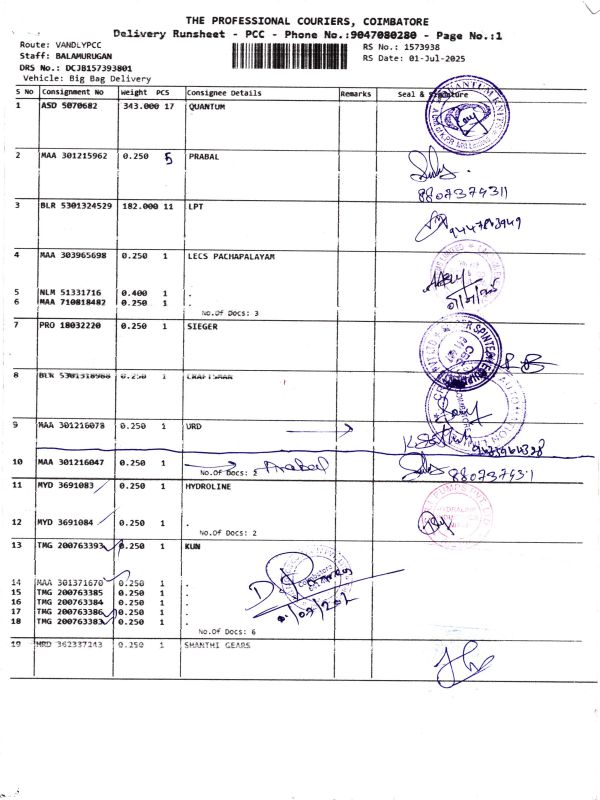 THE PROFESSIONAL COURIERS, COIMBATORE
Delivery Runsheet - PCC - Phone No.:9047080280 - Page No.:1
Route: VANDLYPCC
Staff: BALAMURUGAN
DRS No.: DCJB157393801
Vehicle: Big Bag Delivery
RS No.: 1573938
RS Date: 01-Jul-2025
S No Consignment No Weight PCS Consignee Details Remarks Seal & Signature
1 ASD 5070682 343.000 17 QUANTUM
2 MAA 301215962 0.250 5 PRABAL
8807379311
3 BLR 5301324529 182.000 11 LPT
9447803949
4 MAA 303965698 0.250 1 LECS PACHAPALAYAM
5 NLM 51331716 0.400 1 .
6 MAA 710818482 0.250 1 .
No.Of Docs: 3
7 PRO 18032220 0.250 1 SIEGER
8 BLR 5301318988 0.250 1 CRAFTSMAN
9 MAA 301216078 0.250 1 URD
10 MAA 301216047 0.250 1 .
No.Of Docs: 2 Prabal
11 MYD 3691083 0.250 1 HYDROLINE
12 MYD 3691084 0.250 1 .
No.Of Docs: 2
13 TMG 200763393 0.250 1 KUN
14 MAA 301371670 0.250 1 .
15 TMG 200763385 0.250 1 .
16 TMG 200763384 0.250 1 .
17 TMG 200763386 0.250 1 .
18 TMG 200763383 0.250 1 .
No.Of Docs: 6
19 MRD 362337243 0.250 1 SHANTHI GEARS